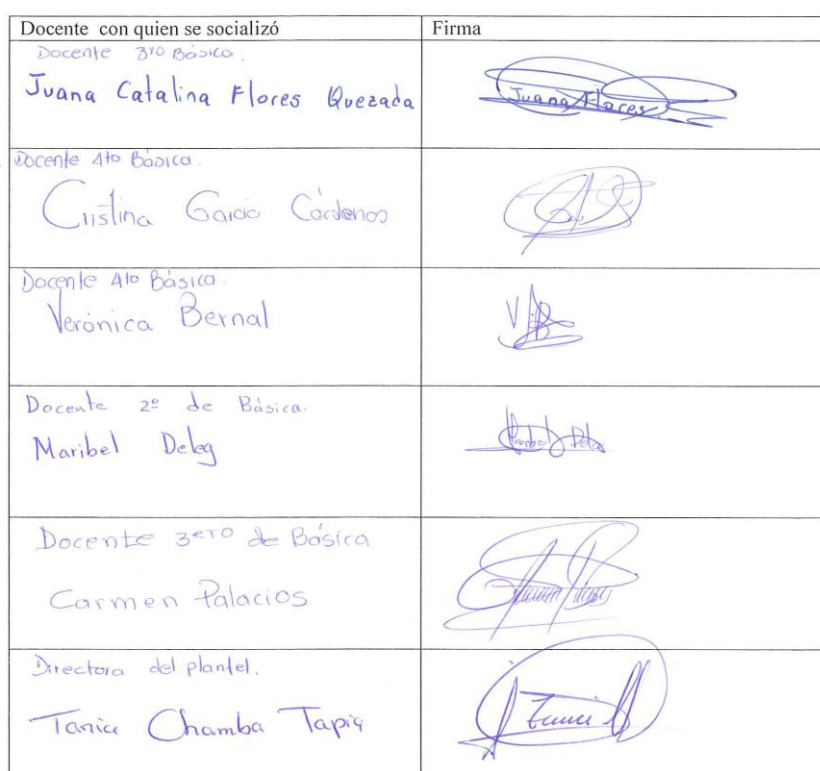 Docente con quien se socializó
Firma
Docente 3ro Básica.
Juana Catalina Flores Quezada
Juana Flores
Docente 4to Básica.
Cristina García Cárdenas
Docente 4to Básica.
Verónica Bernal
Docente 2º de Básica.
Maribel Deleg
Docente 3ero de Básica
Carmen Palacios
Directora del plantel.
Tania Chamba Tapia